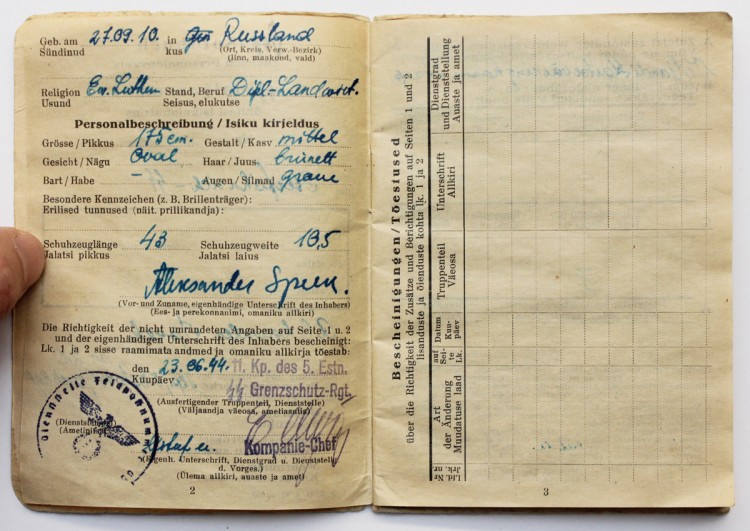 Geb. am 27.09.10. in Russland
Sündinud kus (Ort, Kreis, Verw.-Bezirk)
(linn, maakond, vald)
Religion Ev. Luther Stand, Beruf Dipl.-Landwirt.
Usund Seisus, elukutse
Personalbeschreibung / Isiku kirjeldus
Grösse / Pikkus 175 cm. Gestalt / Kasv mittel
Gesicht / Nägu Oval Haar / Juus brünett
Bart / Habe – Augen / Silmad graue
Besondere Kennzeichen (z. B. Brillenträger):
Erilised tunnused (näit. prillikandja):
Schuhzeuglänge 43 Schuhzeugweite
Jalatsi pikkus Jalatsi laius
Aleksander
(Vor- und Zuname, eigenhändige Unterschrift des Inhabers)
(Ees- ja perekonnanimi, omaniku allkiri)
Die Richtigkeit der nicht umrandeten Angaben auf Seite 1 u. 2
und der eigenhändigen Unterschrift des Inhabers bescheinigt:
Lk. 1 ja 2 sisse raamimata andmed ja omaniku allkirja tõestab:
den 23.06.44. 11. Kp. des 5. Estn.
Kuupäev
Grenzschutz-Rgt.
(Ausfertigender Truppenteil, Dienststelle)
(Väljaandja väeosa, ametiasutis)
Dienststelle Feldpostnum
(Dienststempel)
(Ametipitsat)
Kompanie-Chef
(Eigenh. Unterschrift, Dienstgrad u. Dienststelle
d. Vorges.)
(Ülema allkiri, auaste ja amet)
2
Bescheinigungen / Tõestused
über die Richtigkeit der Zusätze und Berichtigungen auf Seiten 1 und 2
lisanduste ja õienduste kohta lk. 1 ja 2
Lfd. Nr
Jrk. nr.
Art
der Änderung
Muudatuse laad
auf
Sei-
te
Lk.
Datum
Kuu-
päev
Truppenteil
Väeosa
Unterschrift
Allkiri
Dienstgrad
und Dienststellung
Auaste ja amet
3